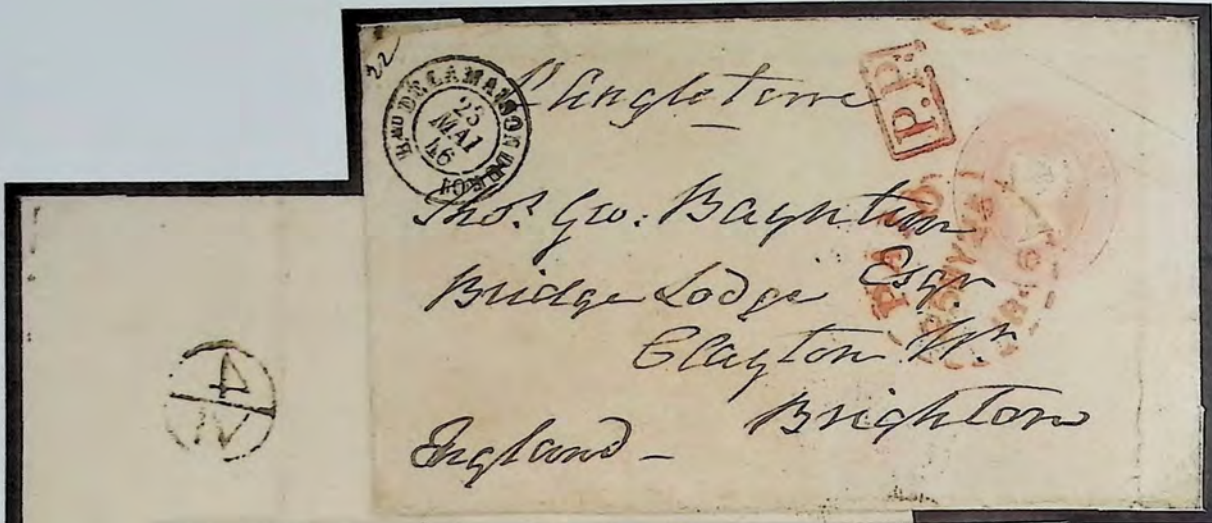 22
BAU DE LA MAISON DU ROI
25
MAI
46
P.P.
L'Engleterre
PAID
25MY25
1846
Thos. Geo: Bayntun
Esqr.
Bridge Lodge
Clayton Wn.
Brighton
England -
4/2